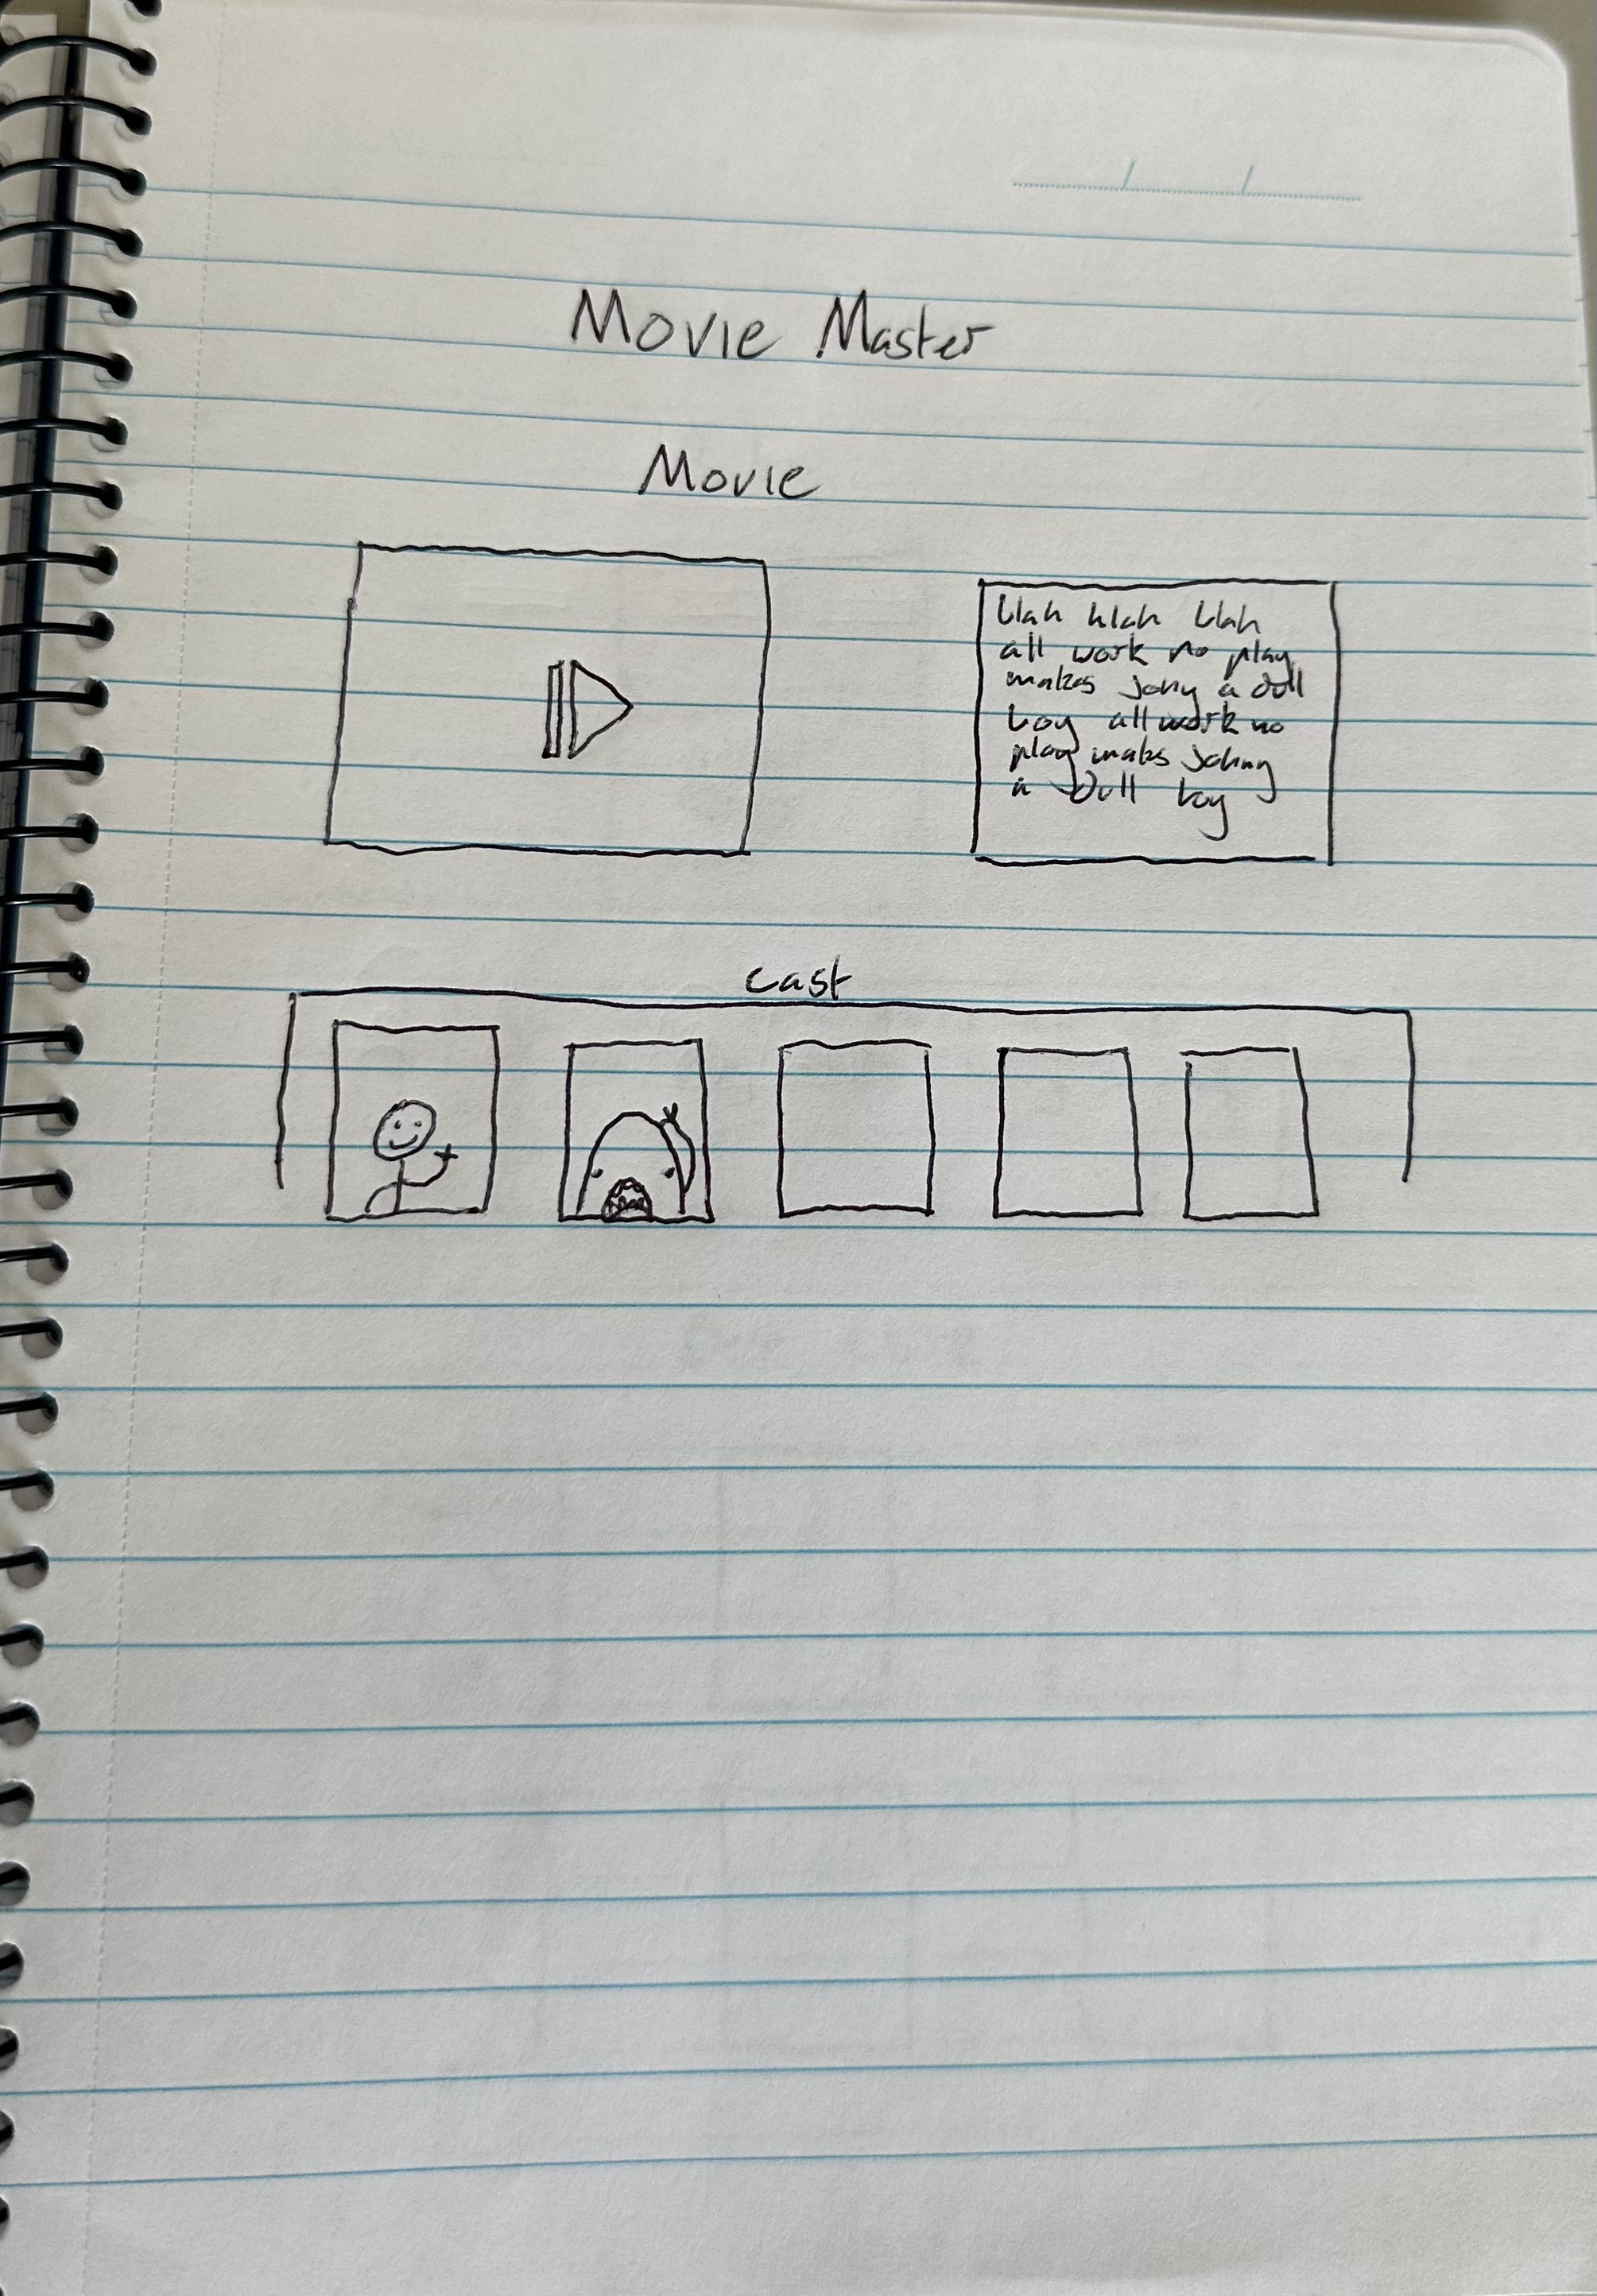 Movie Master
Movie
blah blah blah
all work no play
makes Jony a dull
boy all work no
play maks Johny
a Dull boy
cast